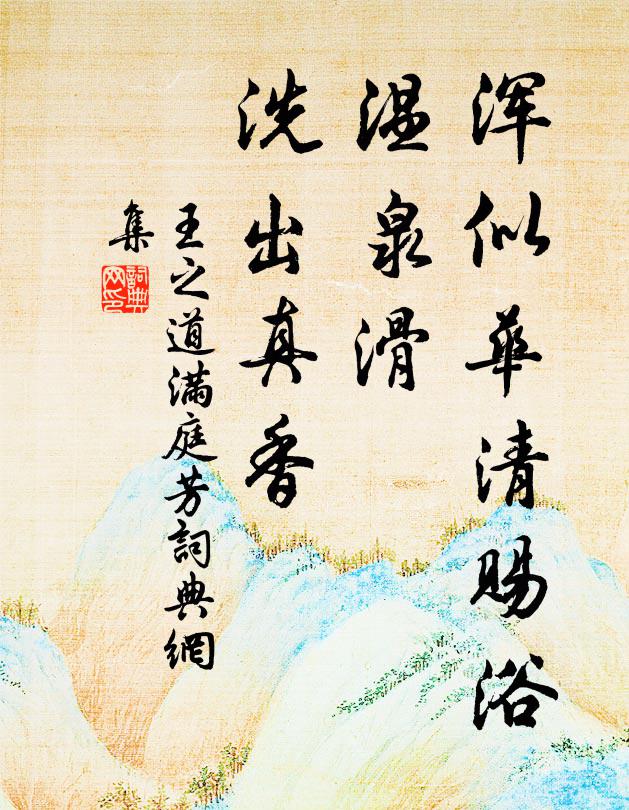 浑似华清赐浴
温泉滑
洗出真香
王之道满庭芳詞典網
集
詞典
网印